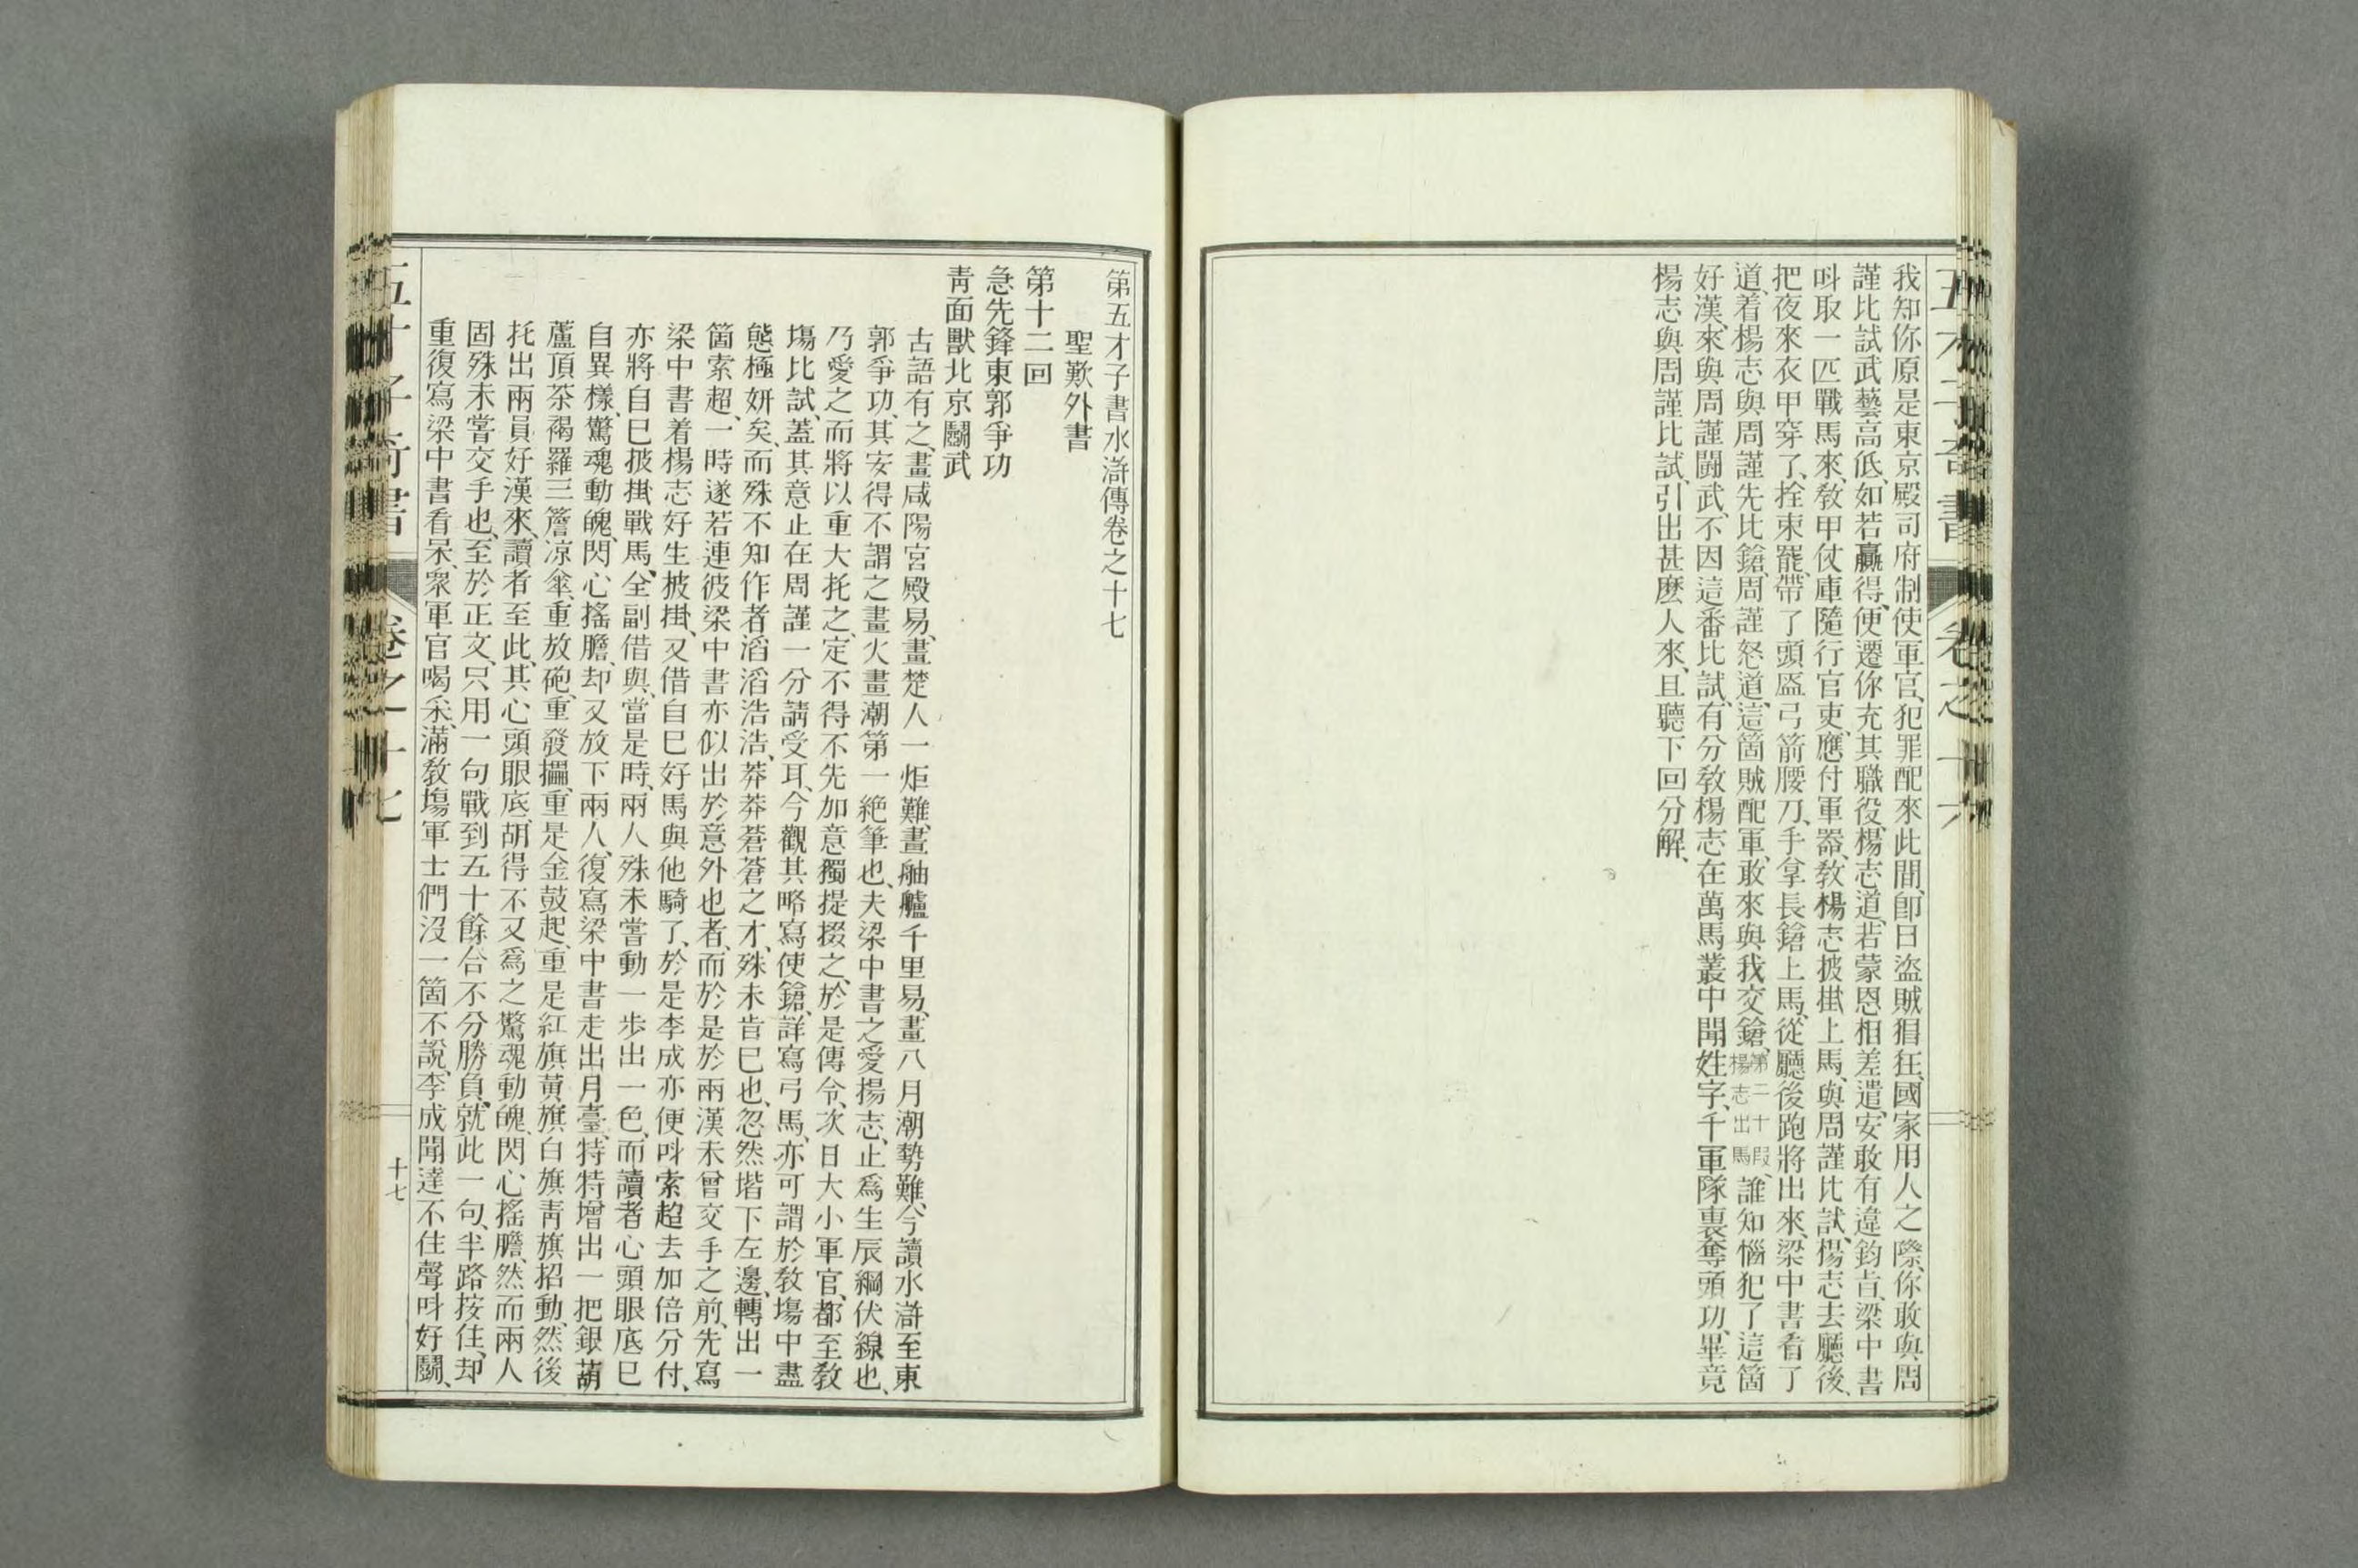 我知你原是東京殿司府制使軍官、犯罪配來此間、卽日盜賊猖狂、國家用人之際、你敢與周
謹比試武藝高低、如若贏得、便遷你充其職役、楊志道、若蒙恩相差遣、安敢有違鈞旨、梁中書
呌取一匹戰馬來、敎甲仗庫隨行官吏、應付軍器、敎楊志披掛上馬、與周謹比試、楊志去廳後、
把夜來衣甲穿了、拴束罷、帶了頭盔弓箭腰刀、手拿長鎗上馬、從廳後跑將出來、梁中書看了
道、着楊志與周謹先比鎗、周謹怒道、這箇賊配軍、敢來與我交鎗、第二十段楊志出馬、誰知惱犯了這箇
好漢、來與周謹鬪武、不因這番比試、有分敎楊志在萬馬叢中聞姓字、千軍隊裏奪頭功、畢竟
楊志與周謹比試、引出甚麽人來、且聽下回分解、
第五才子書水滸傳卷之十七
聖歎外書
第十二回
急先鋒東郭爭功
靑面獸北京鬭武
古語有之、畫咸陽宮殿易、畫楚人一炬難、畫舳艫千里易、畫八月潮勢難、今讀水滸至東
郭爭功、其安得不謂之畫火畫潮第一絶筆也、夫梁中書之愛揚志、止爲生辰綱伏線也、
乃愛之而將以重大托之、定不得不先加意獨提掇之、於是傳令、次日大小軍官、都至敎
塲比試、蓋其意止在周謹一分請受耳、今觀其略寫使鎗、詳寫弓馬、亦可謂於敎塲中盡
態極妍矣、而殊不知作者滔滔浩浩、莽莽蒼蒼之才、殊未肯已也、忽然堦下左邊、轉出一
箇索超、一時遂若連彼梁中書亦似出於意外也者、而於是於兩漢未曾交手之前、先寫
梁中書着楊志好生披掛、又借自巳好馬與他騎了、於是李成亦便呌索超去加倍分付、
亦將自巳披掛戰馬、全副借與、當是時、兩人殊未嘗動一步出一色、而讀者心頭眼底巳
自異樣、驚魂動魄、閃心搖膽、却又放下兩人、復寫梁中書走出月臺、特特增出一把銀葫
蘆頂茶褐羅三簷凉傘、重放砲、重發擂、重是金鼓起、重是紅旗黃旗白旗靑旗招動、然後
托出兩員好漢來、讀者至此、其心頭眼底、胡得不又爲之驚魂動魄、閃心搖膽、然而兩人
固殊未嘗交手也、至於正文、只用一句戰到五十餘合不分勝負、就此一句、半路按住、却
重復寫梁中書看呆、衆軍官喝采、滿敎塲軍士們沒一箇不說、李成聞達不住聲呌好鬭、
十七